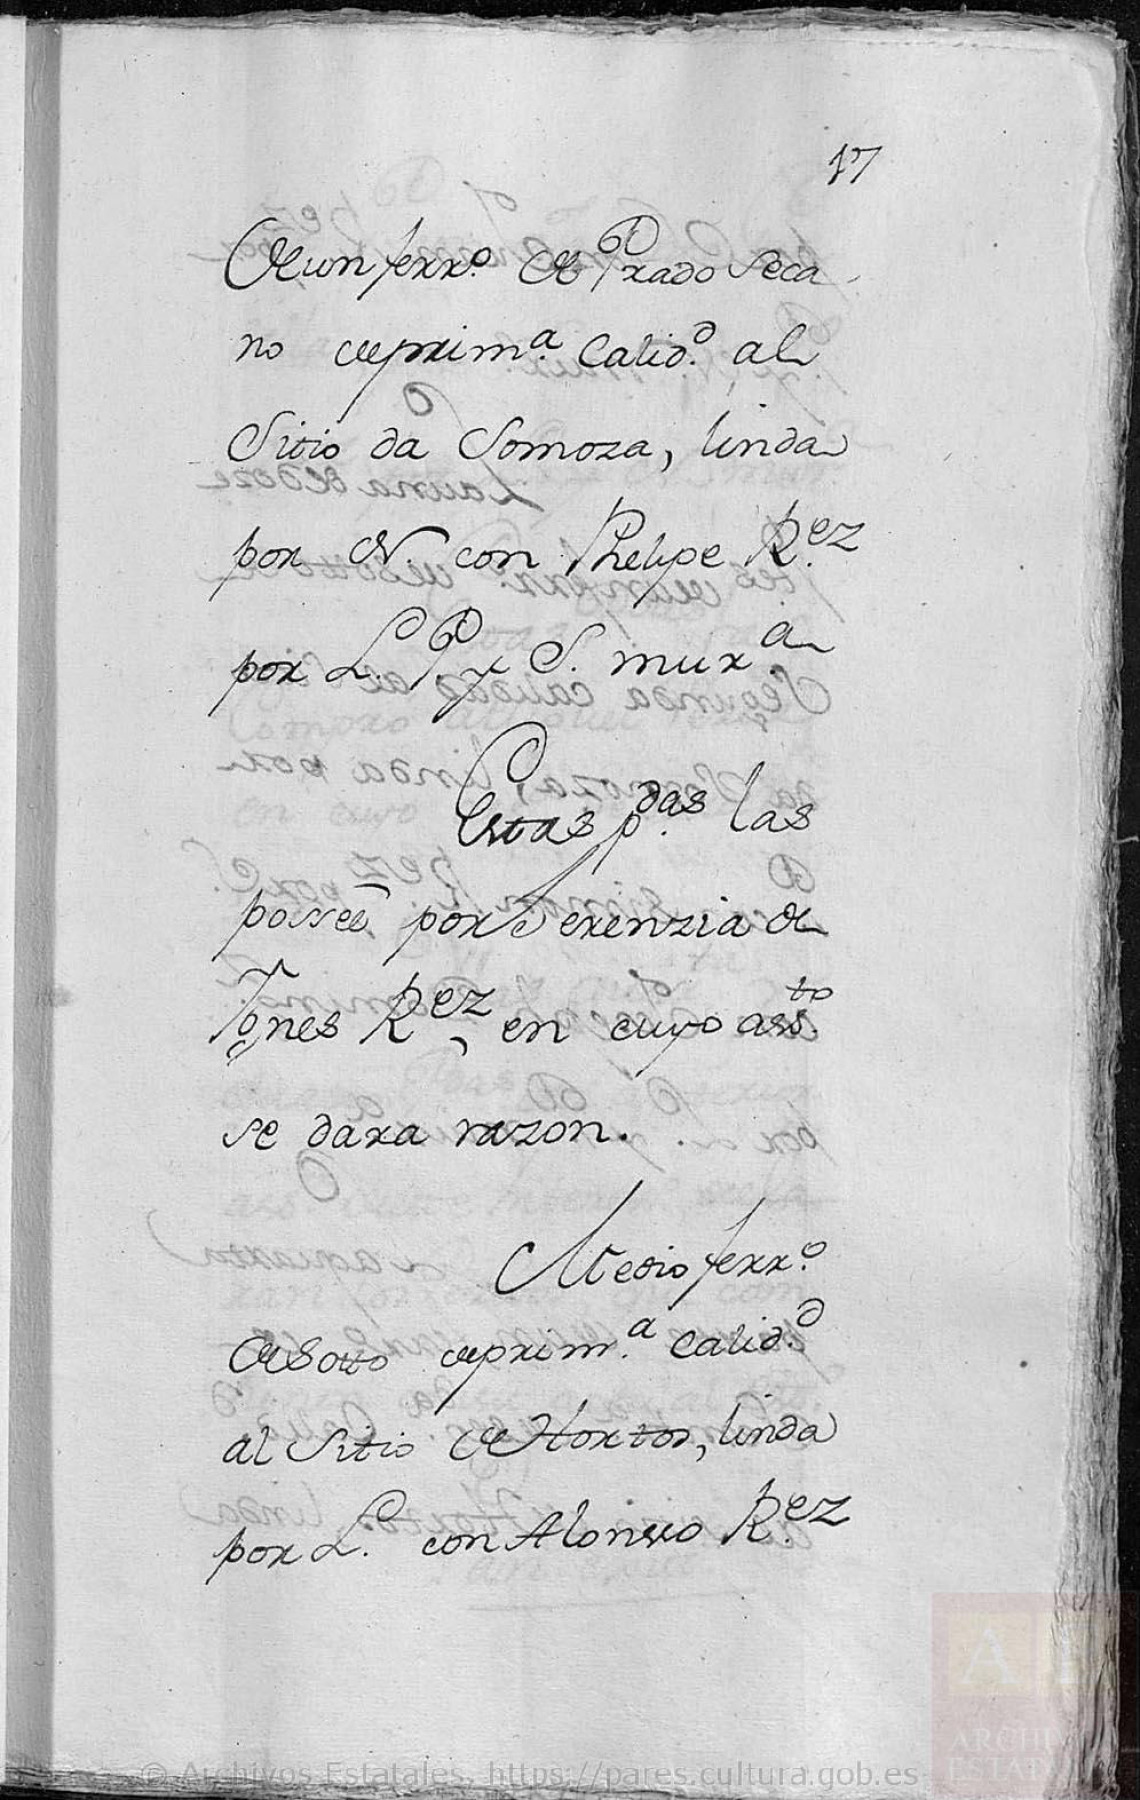 17
De un ferr.º de Prado Seca
no de prim.ª Calid.d al
Sitio da Somoza, linda
por N con Phelipe R.ez
por L. P. y S. mur.ª
Estas p.das las
posseê por herenzia de
Ygnes R.ez, en cuyo ass.to
se dara razon.
Medio ferr.º
de Sotto de prim.ª Calid.d
al Sitio de Hortos, linda
por L. con Alonsso R.ez
© Archivos Estatales, https://pares.cultura.gob.es